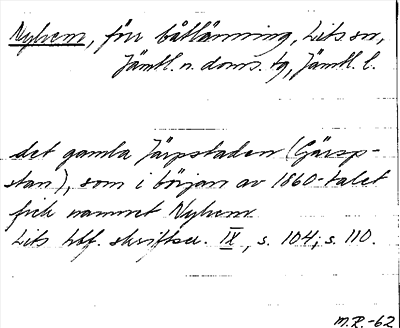 Nyhem, förr båtlänning, Lits sn,
Jämtl. n. doms. tg, Jämtl. l.
det gamla Järpstaden (Gärsp-
stan), som i början av 1860-talet
fick namnet Nyhem.
Lits hbf. skriftser. IX, s. 104; s. 110.
M.R.-62